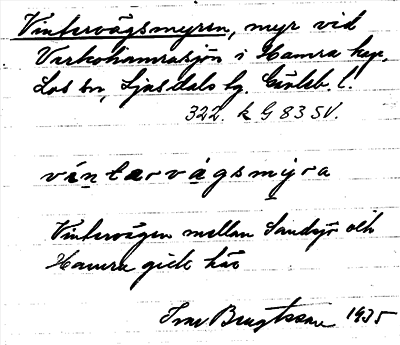 Vintervägsmyren, myr vid
Varkohamrasjön i Hamra kap.
Los sn, Ljusdals tg. Gävleb. l.
322. k G 83 SV.
vintərvägsmyra
Vintervägen mellan Sandsjö och
Hamra gick här
Ivar Bengtsson 1935